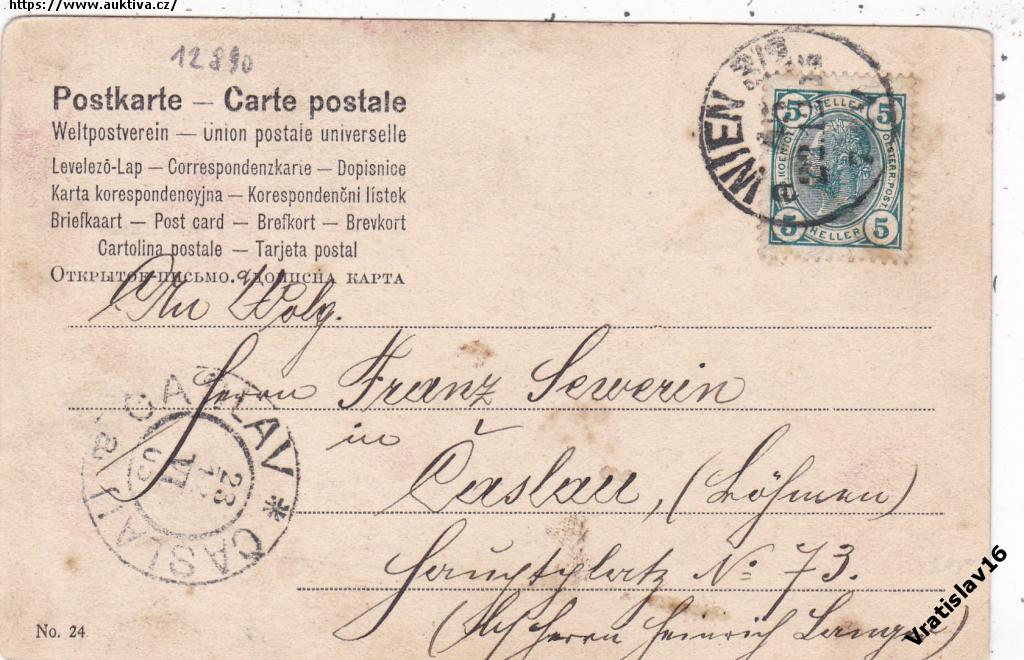 https://www.auktiva.cz/
12890
Postkarte — Carte postale
Weltpostverein — Union postale universelle
Levelező-Lap — Correspondenzkarte — Dopisnice
Karta korespondencyjna — Korespondenčni lístek
Briefkaart — Post card — Brefkort — Brevkort
Cartolina postale — Tarjeta postal
Открытое письмо. — Дописна карта
WIEN
5 HELLER 5
5 HELLER 5
An Wolg.
Herrn Franz Sewerin
in
Časlau, (Böhmen)
Hauptplatz № 73.
Herrn Heinrich Lange
ČASLAV * ČASLAU
a
23
VI
No. 24
Vratislav16